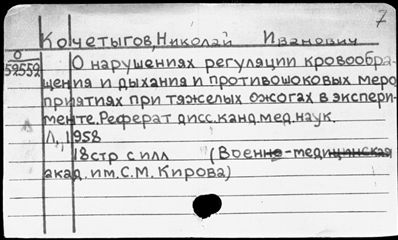 7
Кочетыгов, Николай Иванович
О
59559
О нарушениях регуляции кровообра-
щения и дыхания и противошоковых меро
приятиях при тяжелых ожогах в экспери-
менте. Реферат дисс. канд. мед. наук.
Л, 1958
18 стр с илл (Военно-медицинская
акад. им. С.М. Кирова)